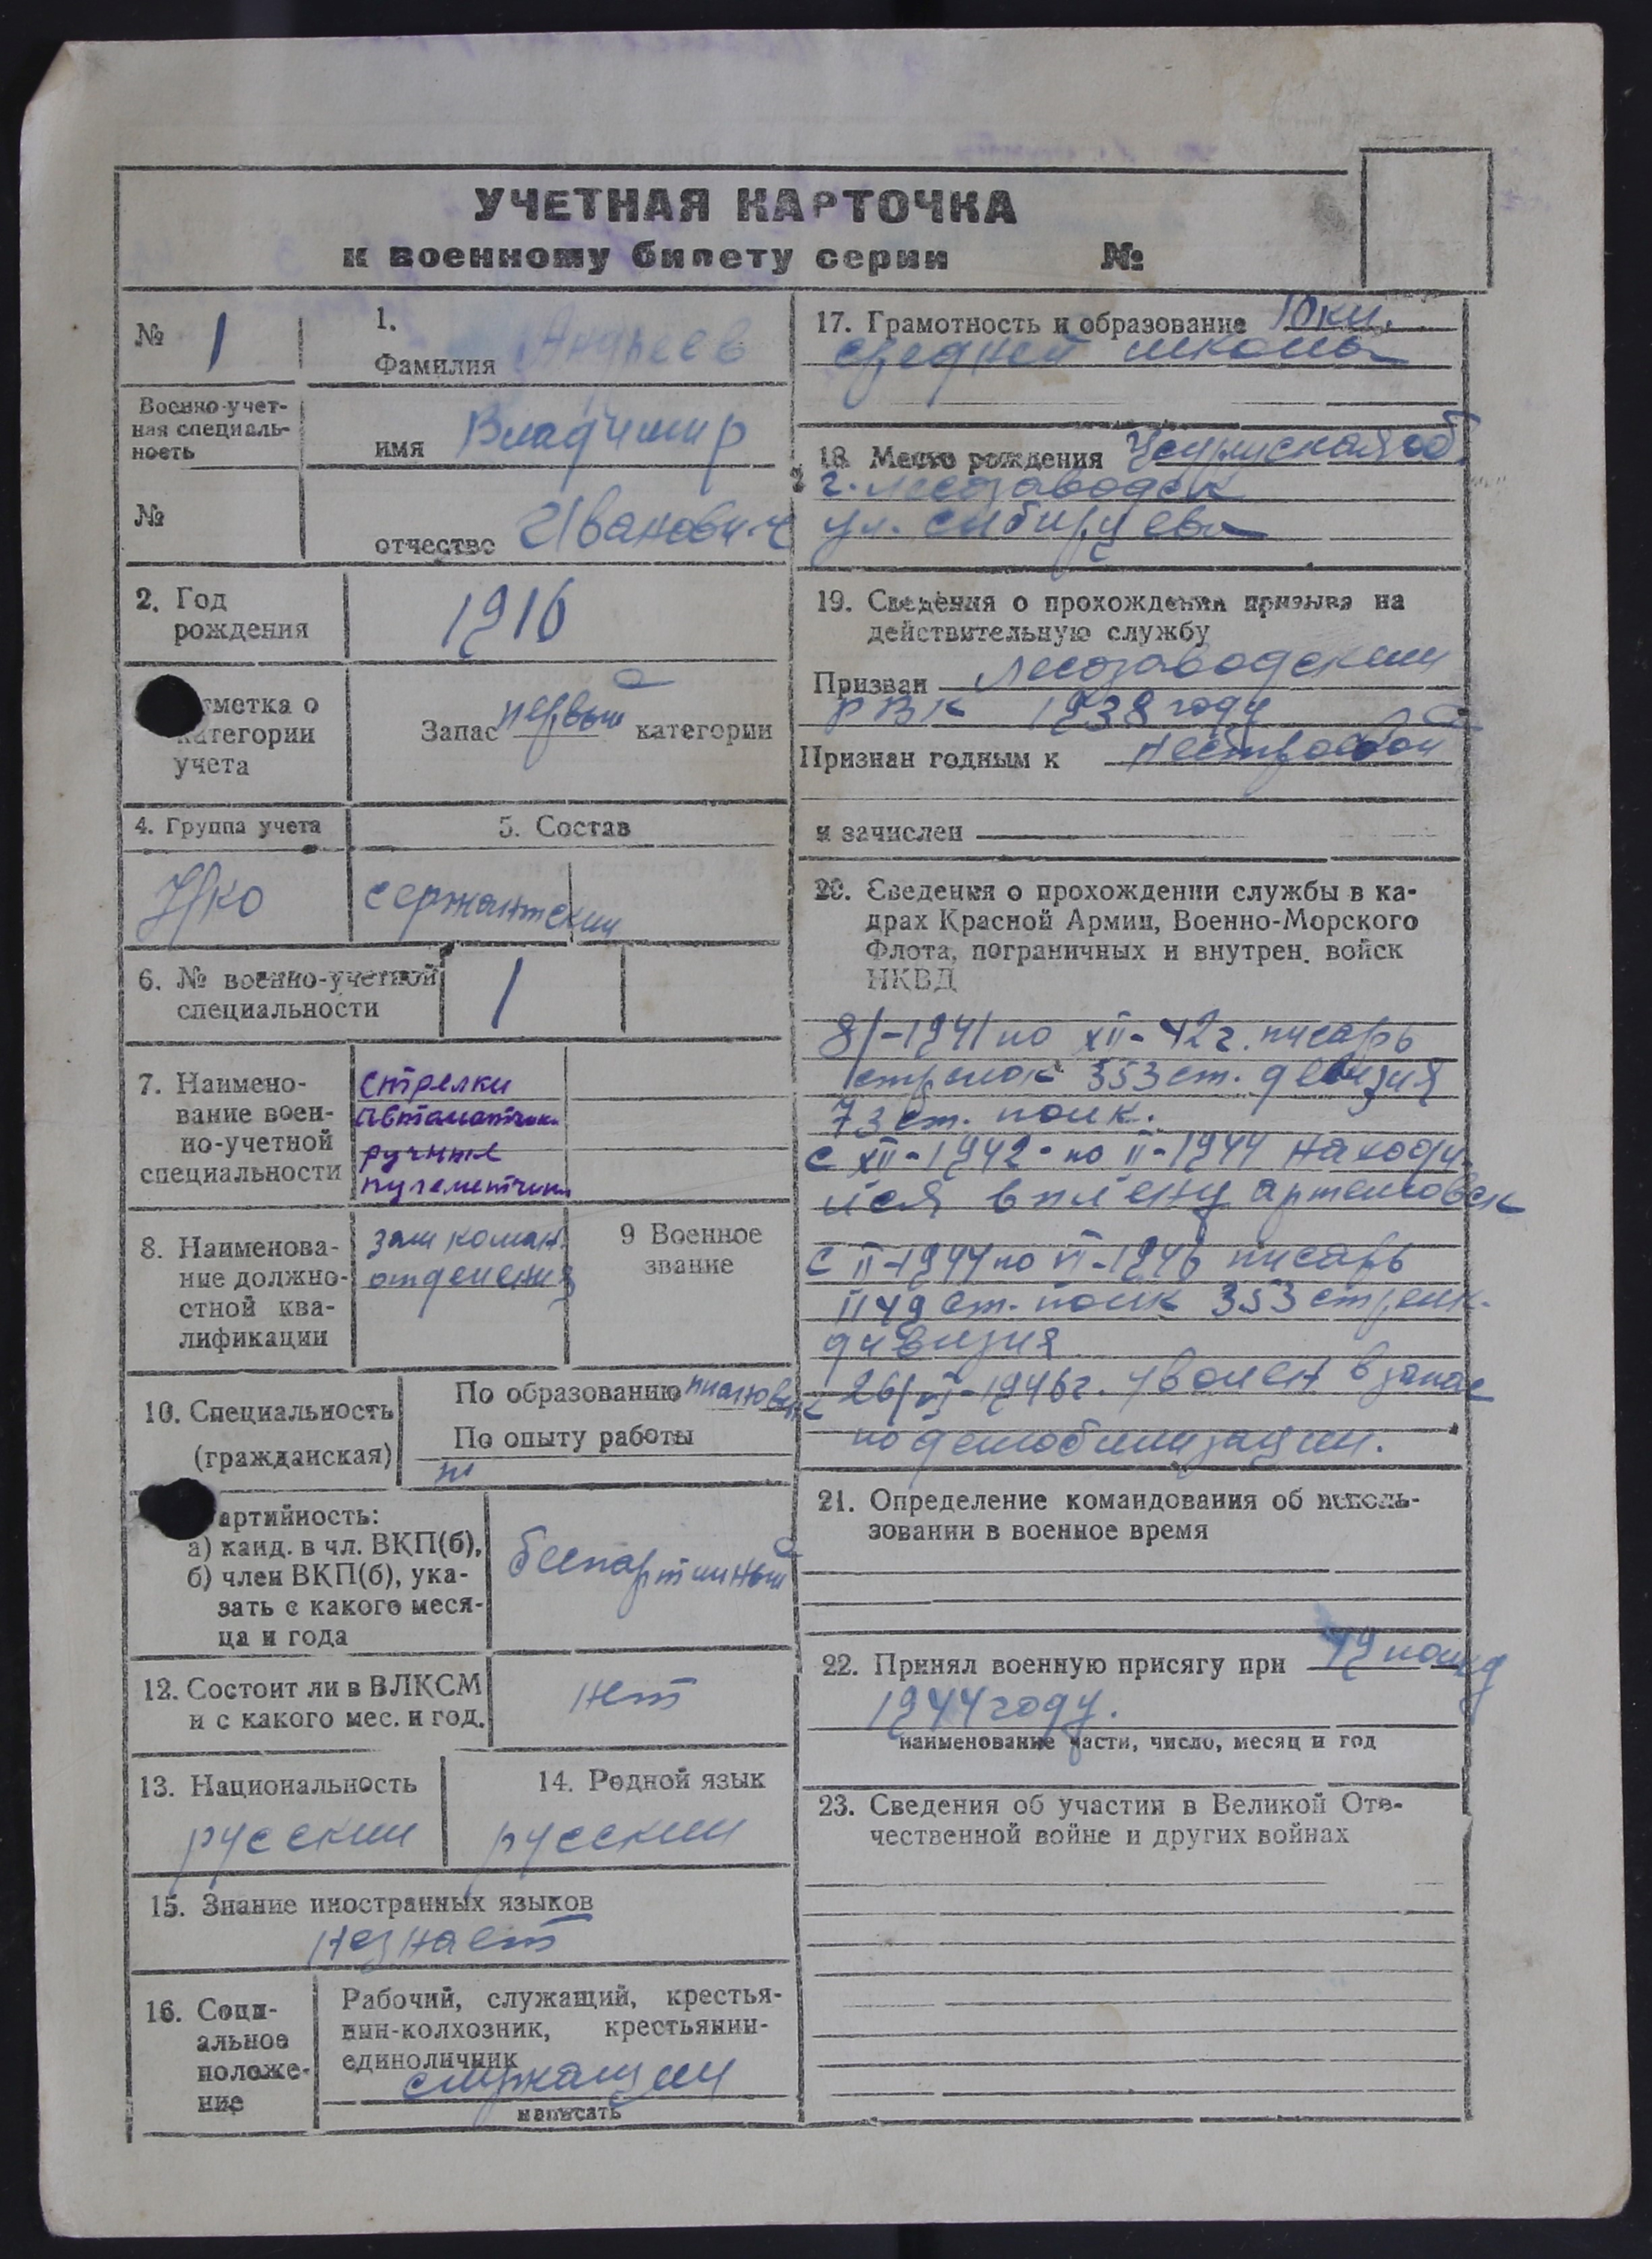 УЧЕТНАЯ КАРТОЧКА
к военному билету серии №
№ 1
1.
Фамилия Андреев
Военно-учет-
ная специаль-
ность
имя Владимир
№
отчество Иванович
2. Год
рождения
1916
тметка о
категории
учета
Запас первый категории
4. Группа учета
5. Состав
УКО
сержантский
6. № военно-учетной
специальности
1
7. Наимено-
вание воен-
но-учетной
специальности
стрелки
автоматчик
ручные
пулеметчики
8. Наименова-
ние должно-
стной ква-
лификации
зам коман
отделения
9 Военное
звание
10. Специальность
(гражданская)
По образованию плановик
По опыту работы
артийность:
а) канд. в чл. ВКП(б),
б) член ВКП(б), ука-
зать с какого меся-
ца и года
беспартийный
12. Состоит ли в ВЛКСМ
и с какого мес. и год.
нет
13. Национальность
русский
14. Родной язык
русский
15. Знание иностранных языков
не знает
16. Соци-
альное
положе-
ние
Рабочий, служащий, крестья-
нин-колхозник, крестьянин-
единоличник
служащий
написать
17. Грамотность и образование 10 кл.
средней школы
18. Место рождения Усурийская об
г. Лесозаводск
ул. Сибирцева
19. Сведения о прохождении призыва на
действительную службу
Призван Лесозаводский
РВК 1938 году
Признан годным к нестроевой
и зачислен
20. Сведения о прохождении службы в ка-
драх Красной Армии, Военно-Морского
Флота, пограничных и внутрен. войск
НКВД
8/-1941 по XII-42 г. писарь
стрелок 353 ст. дивизия
73 ст. полк.
с XII-1942 по II-1944 находи
лся в плену Артемовск
с II-1944 по VI-1946 писарь
1149 ст. полк 353 стрелк.
дивизия
26/VI-1946 г. уволен в запас
по демобилизации.
21. Определение командования об исполь-
зовании в военное время
22. Принял военную присягу при 49 полку
1944 году.
наименование части, число, месяц и год
23. Сведения об участии в Великой Оте-
чественной войне и других войнах